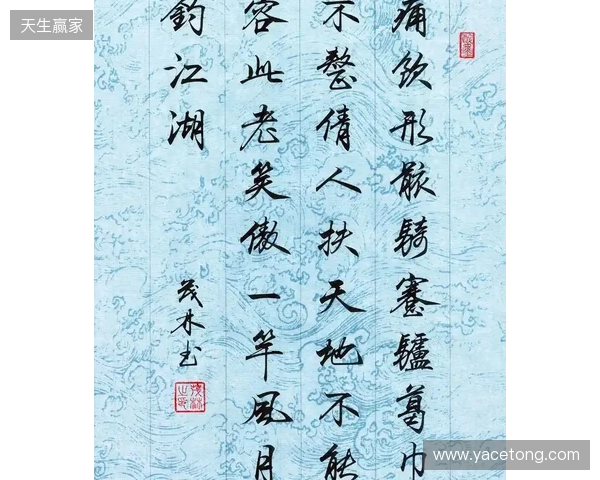 天生赢家
痛饮形骸騎蹇驢葛巾
不整倩人扶天地不能
容此老笑傲一竿風月
釣江湖
茂林书
www.yacetong.com